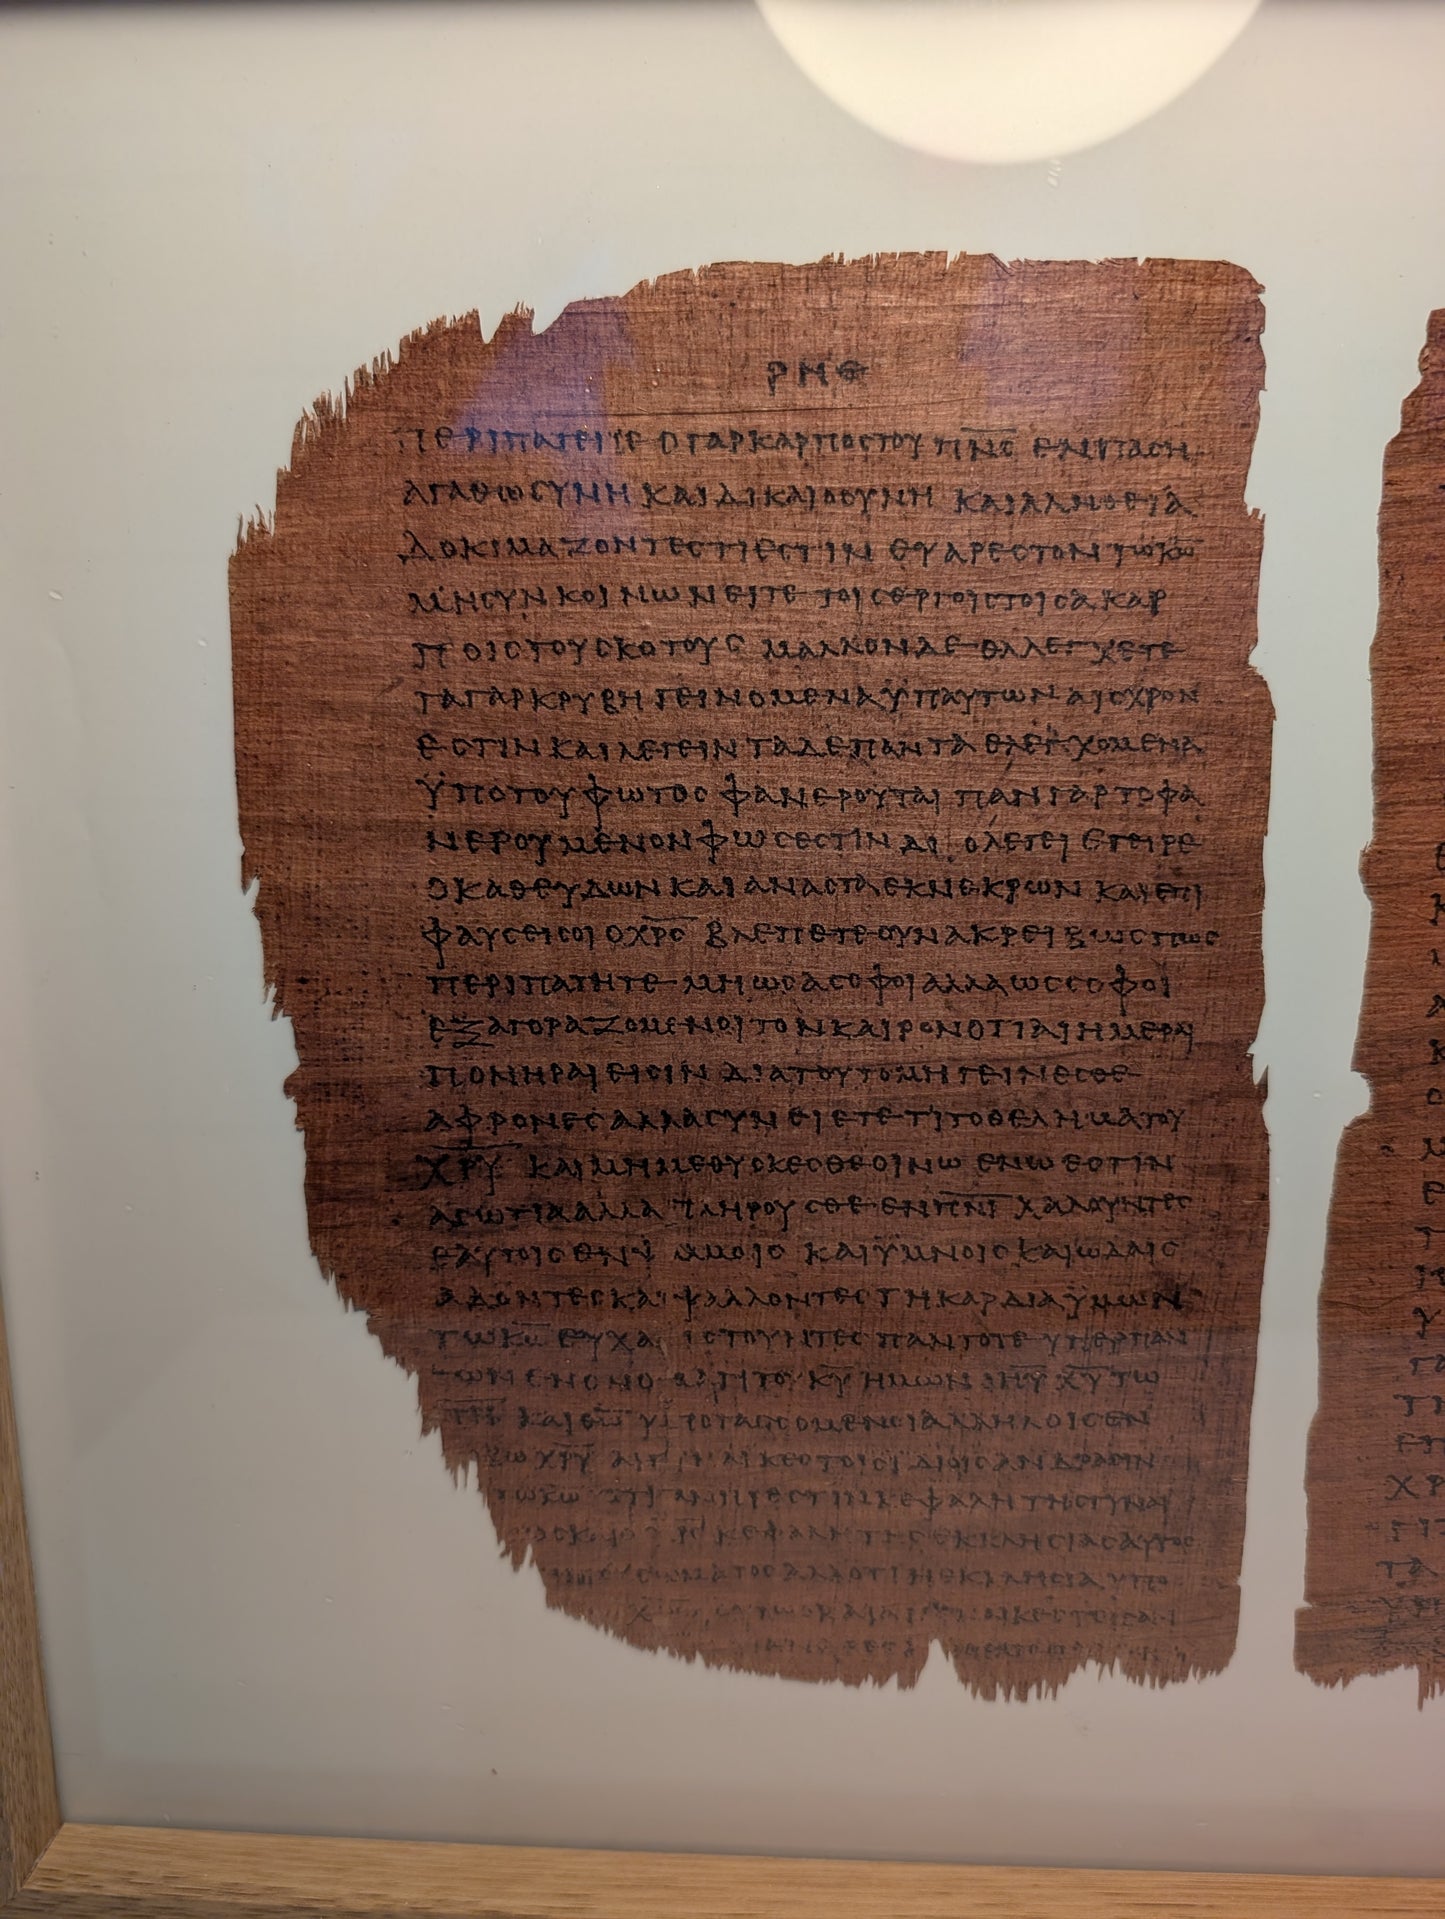 ΡΜΘ
ΠΕΡΙΠΑΤΕΙΤΕ Ο ΓΑΡ ΚΑΡΠΟΣ ΤΟΥ Π̅Ν̅Σ̅ ΕΝ ΠΑΣΗ
ΑΓΑΘΩΣΥΝΗ ΚΑΙ ΔΙΚΑΙΟΣΥΝΗ ΚΑΙ ΑΛΗΘΕΙΑ
ΔΟΚΙΜΑΖΟΝΤΕΣ ΤΙ ΕΣΤΙΝ ΕΥΑΡΕΣΤΟΝ ΤΩ Κ̅Ω̅
ΜΗ ΣΥΝΚΟΙΝΩΝΕΙΤΕ ΤΟΙΣ ΕΡΓΟΙΣ ΤΟΙΣ ΑΚΑΡ
ΠΟΙΣ ΤΟΥ ΣΚΟΤΟΥΣ ΜΑΛΛΟΝ ΔΕ ΕΛΕΓΧΕΤΕ
ΤΑ ΓΑΡ ΚΡΥΒΗ ΓΕΙΝΟΜΕΝΑ ΫΠ ΑΥΤΩΝ ΑΙΣΧΡΟΝ
ΕΣΤΙΝ ΚΑΙ ΛΕΓΕΙΝ ΤΑ ΔΕ ΠΑΝΤΑ ΕΛΕΓΧΟΜΕΝΑ
ΫΠΟ ΤΟΥ ΦΩΤΟΣ ΦΑΝΕΡΟΥΤΑΙ ΠΑΝ ΓΑΡ ΤΟ ΦΑ
ΝΕΡΟΥΜΕΝΟΝ ΦΩΣ ΕΣΤΙΝ ΔΙΟ ΛΕΓΕΙ ΕΓΕΙΡΕ
Ο ΚΑΘΕΥΔΩΝ ΚΑΙ ΑΝΑΣΤΑ ΕΚ ΝΕΚΡΩΝ ΚΑΙ ΕΠΙ
ΦΑΥΣΕΙ ΣΟΙ Ο Χ̅Ρ̅Σ̅ ΒΛΕΠΕΤΕ ΟΥΝ ΑΚΡΕΙΒΩΣ ΠΩΣ
ΠΕΡΙΠΑΤΗΤΕ ΜΗ ΩΣ ΑΣΟΦΟΙ ΑΛΛΑ ΩΣ ΣΟΦΟΙ
ΕΞΑΓΟΡΑΖΟΜΕΝΟΙ ΤΟΝ ΚΑΙΡΟΝ ΟΤΙ ΑΙ ΗΜΕΡΑΙ
ΠΟΝΗΡΑΙ ΕΙΣΙΝ ΔΙΑ ΤΟΥΤΟ ΜΗ ΓΕΙΝΕΣΘΕ
ΑΦΡΟΝΕΣ ΑΛΛΑ ΣΥΝΕΙΕΤΕ ΤΙ ΤΟ ΘΕΛΗΜΑ ΤΟΥ
Χ̅Ρ̅Υ̅ ΚΑΙ ΜΗ ΜΕΘΥΣΚΕΣΘΕ ΟΙΝΩ ΕΝ Ω ΕΣΤΙΝ
ΑΣΩΤΙΑ ΑΛΛΑ ΠΛΗΡΟΥΣΘΕ ΕΝ Π̅Ν̅Ι̅ ΛΑΛΟΥΝΤΕΣ
ΕΑΥΤΟΙΣ ΕΝ ΨΑΛΜΟΙΣ ΚΑΙ ΫΜΝΟΙΣ ΚΑΙ ΩΔΑΙΣ
ΑΔΟΝΤΕΣ ΚΑΙ ΨΑΛΛΟΝΤΕΣ ΤΗ ΚΑΡΔΙΑ ΫΜΩΝ
ΤΩ Κ̅Ω̅ ΕΥΧΑΡΙΣΤΟΥΝΤΕΣ ΠΑΝΤΟΤΕ ΥΠΕΡ ΠΑΝ
ΤΩΝ ΕΝ ΟΝΟΜΑΤΙ ΤΟΥ Κ̅Υ̅ ΗΜΩΝ Ι̅Η̅Υ̅ Χ̅Ρ̅Υ̅ ΤΩ
ΚΑΙ ΥΠΟΤΑΣΣΟΜΕΝΟΙ ΑΛΛΗΛΟΙΣ ΕΝ
Χ̅Ρ̅Υ̅ ΑΙ ΓΥΝΑΙΚΕΣ ΤΟΙΣ ΙΔΙΟΙΣ ΑΝΔΡΑΣΙΝ
ΤΩ Κ̅Ω̅ ΟΤΙ ΑΝΗΡ ΕΣΤΙΝ ΚΕΦΑΛΗ ΤΗΣ ΓΥΝΑΙ
ΚΕΦΑΛΗ ΤΗΣ ΕΚΚΛΗΣΙΑΣ ΑΥΤΟΣ
ΣΩΜΑΤΟΣ ΑΛΛΑ Η ΕΚΚΛΗΣΙΑ ΥΠΟ